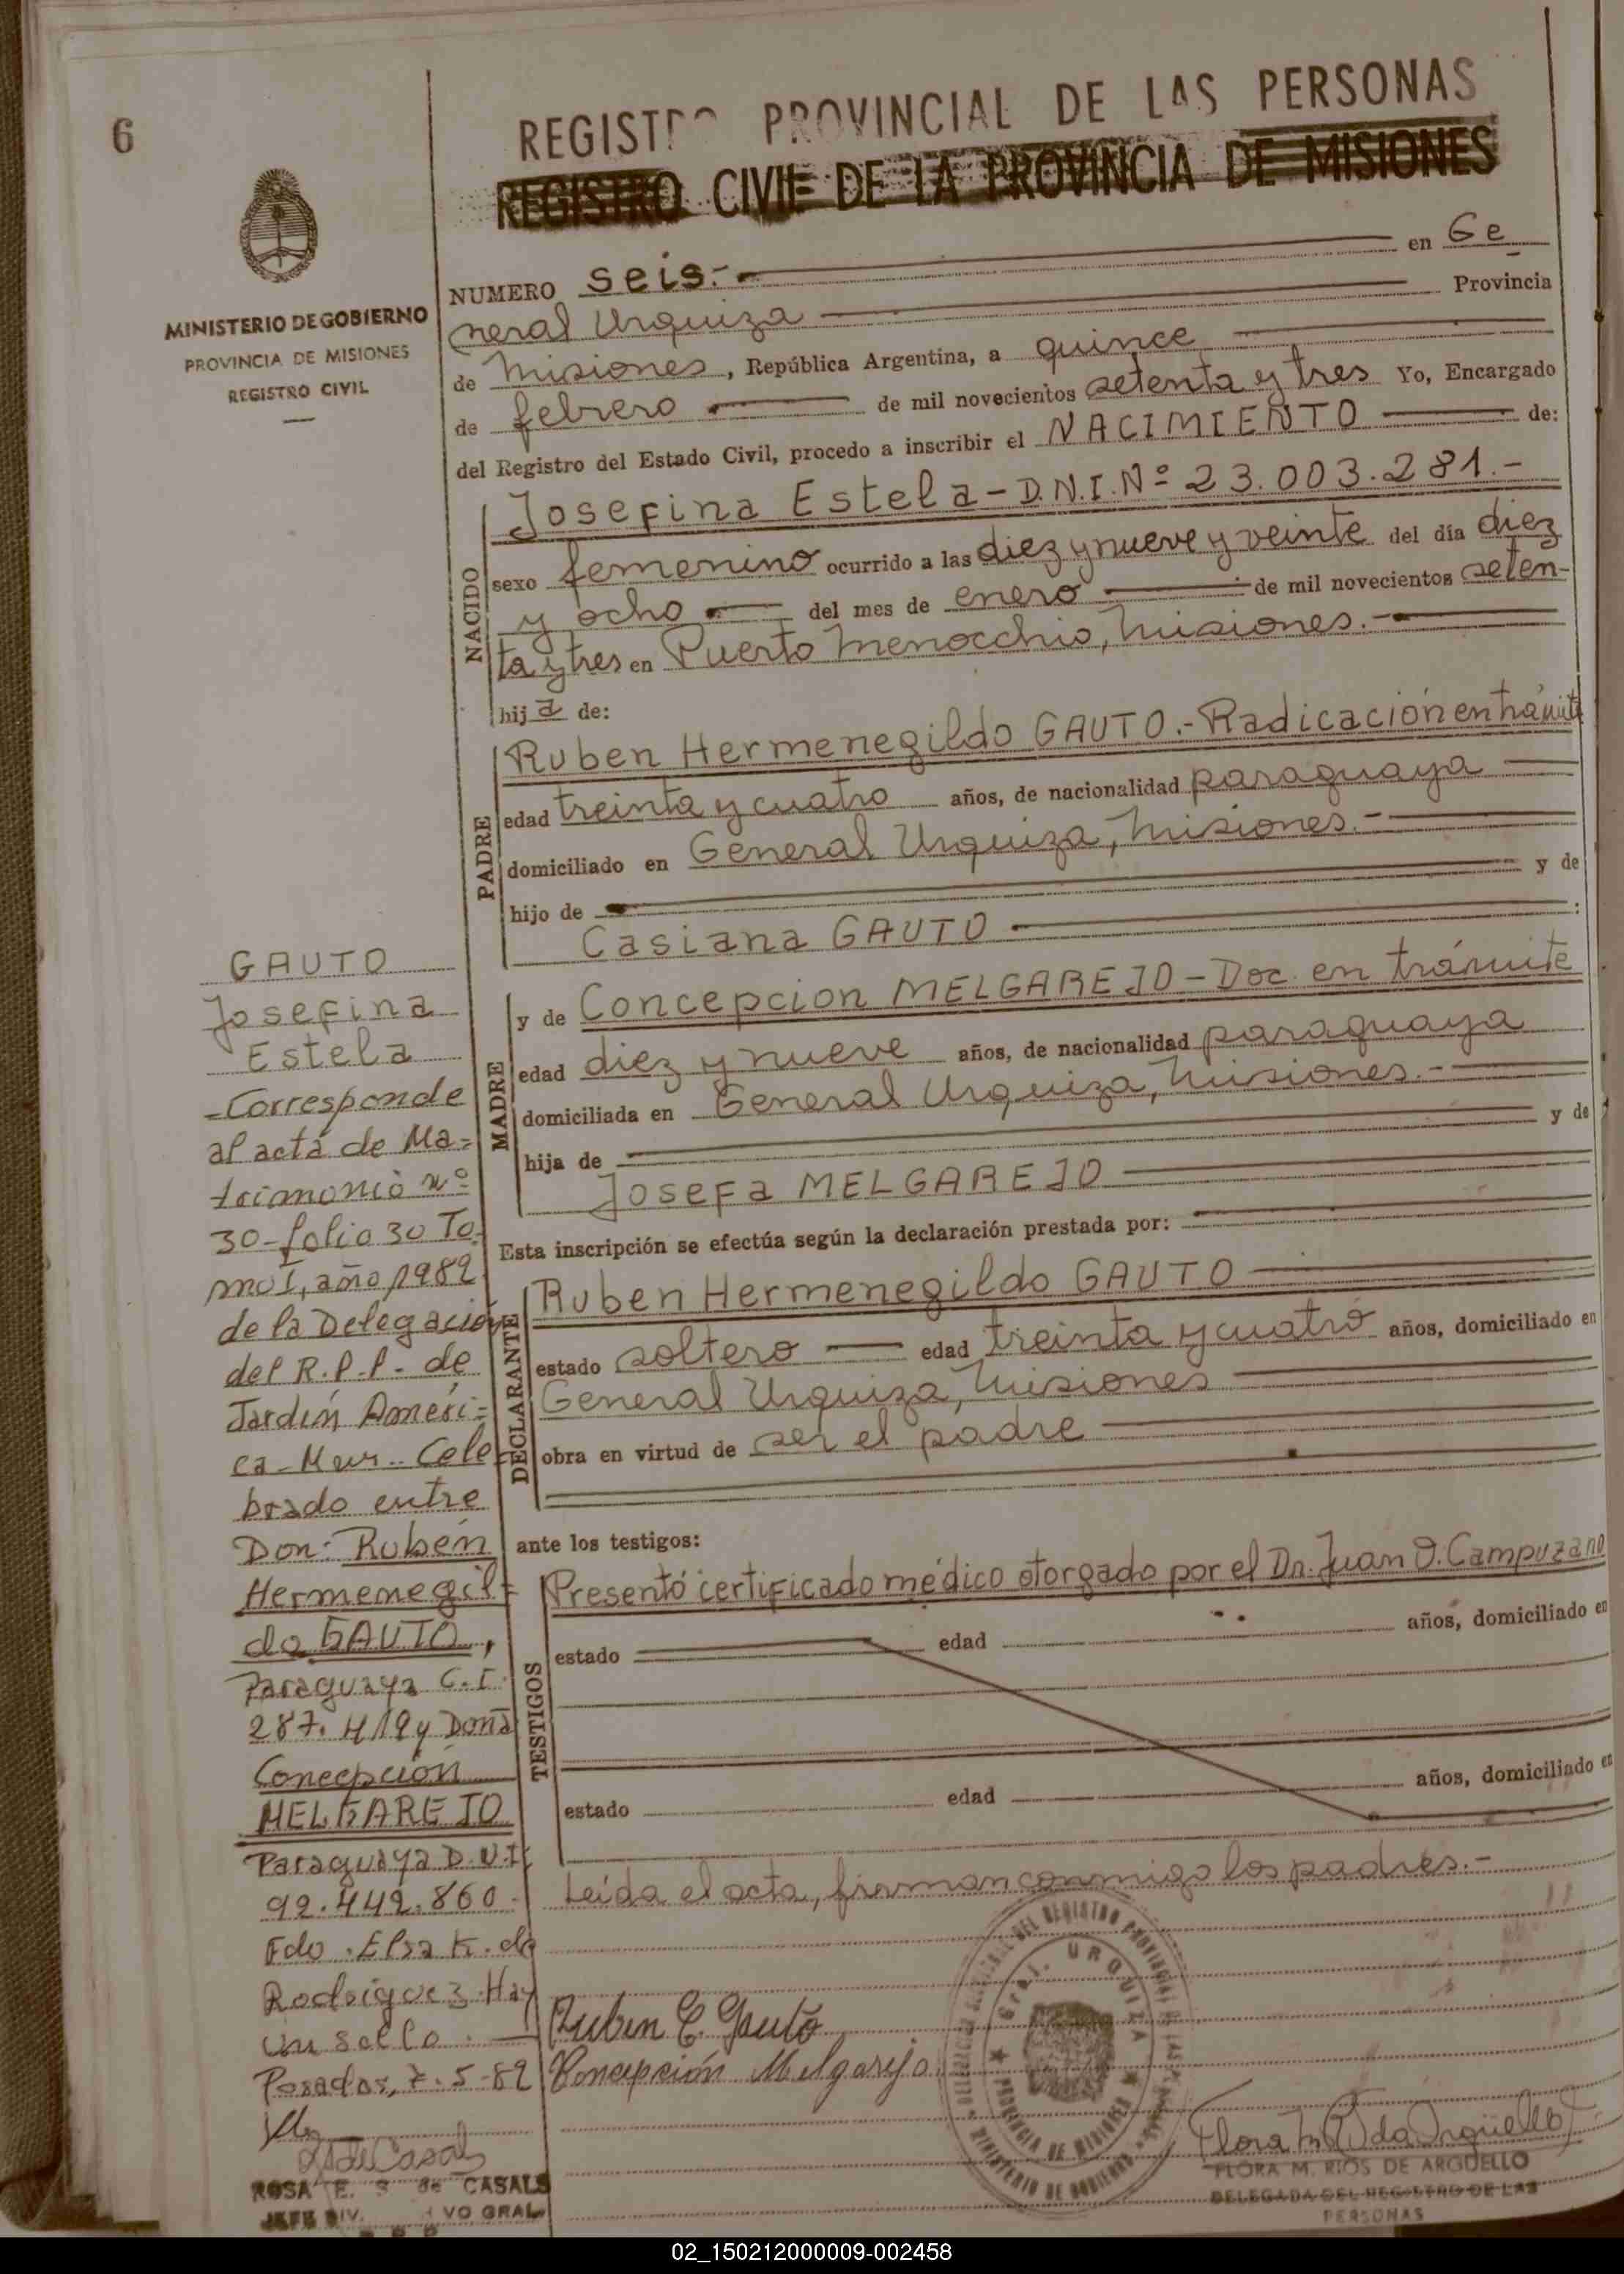 6
REGISTRO PROVINCIAL DE LAS PERSONAS
REGISTRO CIVIL DE LA PROVINCIA DE MISIONES
MINISTERIO DE GOBIERNO
PROVINCIA DE MISIONES
REGISTRO CIVIL
NUMERO seis.- en Ge
neral Urquiza Provincia
de Misiones, República Argentina, a quince
de febrero de mil novecientos setenta y tres Yo, Encargado
del Registro del Estado Civil, procedo a inscribir el NACIMIENTO de:
NACIDO
Josefina Estela - D.N.I. Nº 23.003.281.-
sexo femenino ocurrido a las diez y nueve y veinte del día diez
y ocho del mes de enero de mil novecientos seten-
ta y tres en Puerto Menocchio, Misiones.-
hija de:
PADRE
Ruben Hermenegildo GAUTO.- Radicación en trámite
edad treinta y cuatro años, de nacionalidad paraguaya
domiciliado en General Urquiza, Misiones.-
hijo de y de
Casiana GAUTO :
MADRE
y de Concepcion MELGAREJO - Doc. en trámite
edad diez y nueve años, de nacionalidad paraguaya
domiciliada en General Urquiza, Misiones.-
hija de y de
Josefa MELGAREJO
Esta inscripción se efectúa según la declaración prestada por:
DECLARANTE
Ruben Hermenegildo GAUTO
estado soltero edad treinta y cuatro años, domiciliado en
General Urquiza, Misiones
obra en virtud de ser el padre
ante los testigos:
TESTIGOS
Presentó certificado médico otorgado por el Dr. Juan D. Campuzano
estado edad años, domiciliado en
estado edad años, domiciliado en
Leída el acta, firman conmigo los padres.-
Ruben C. Gauto
Concepción Melgarejo
GRAL. URQUIZA
PROVINCIA DE MISIONES
MINISTERIO DE GOBIERNO
FLORA M. RIOS DE ARGÜELLO
DELEGADA DEL REGISTRO DE LAS
PERSONAS
GAUTO
Josefina
Estela
-Corresponde
al acta de Ma=
trimonio nº
30-folio 30 To-
mo I, año 1982
de la Delegación
del R.P.P.- de
Jardín Améri=
ca- Mnes.. Cele=
brado entre
Don: Rubén
Hermenegil=
do GAUTO,
Paraguaya C.I.
287.419 y Doña
Concepción
MELGAREJO
Paraguaya D.N.I.
92.442.860.
Fdo. Elsa K. de
Rodríguez. Hay
un sello.
Posadas, 7-5-82
ROSA E. S de CASALS
JEFE DIV. VO GRAL
02_150212000009-002458